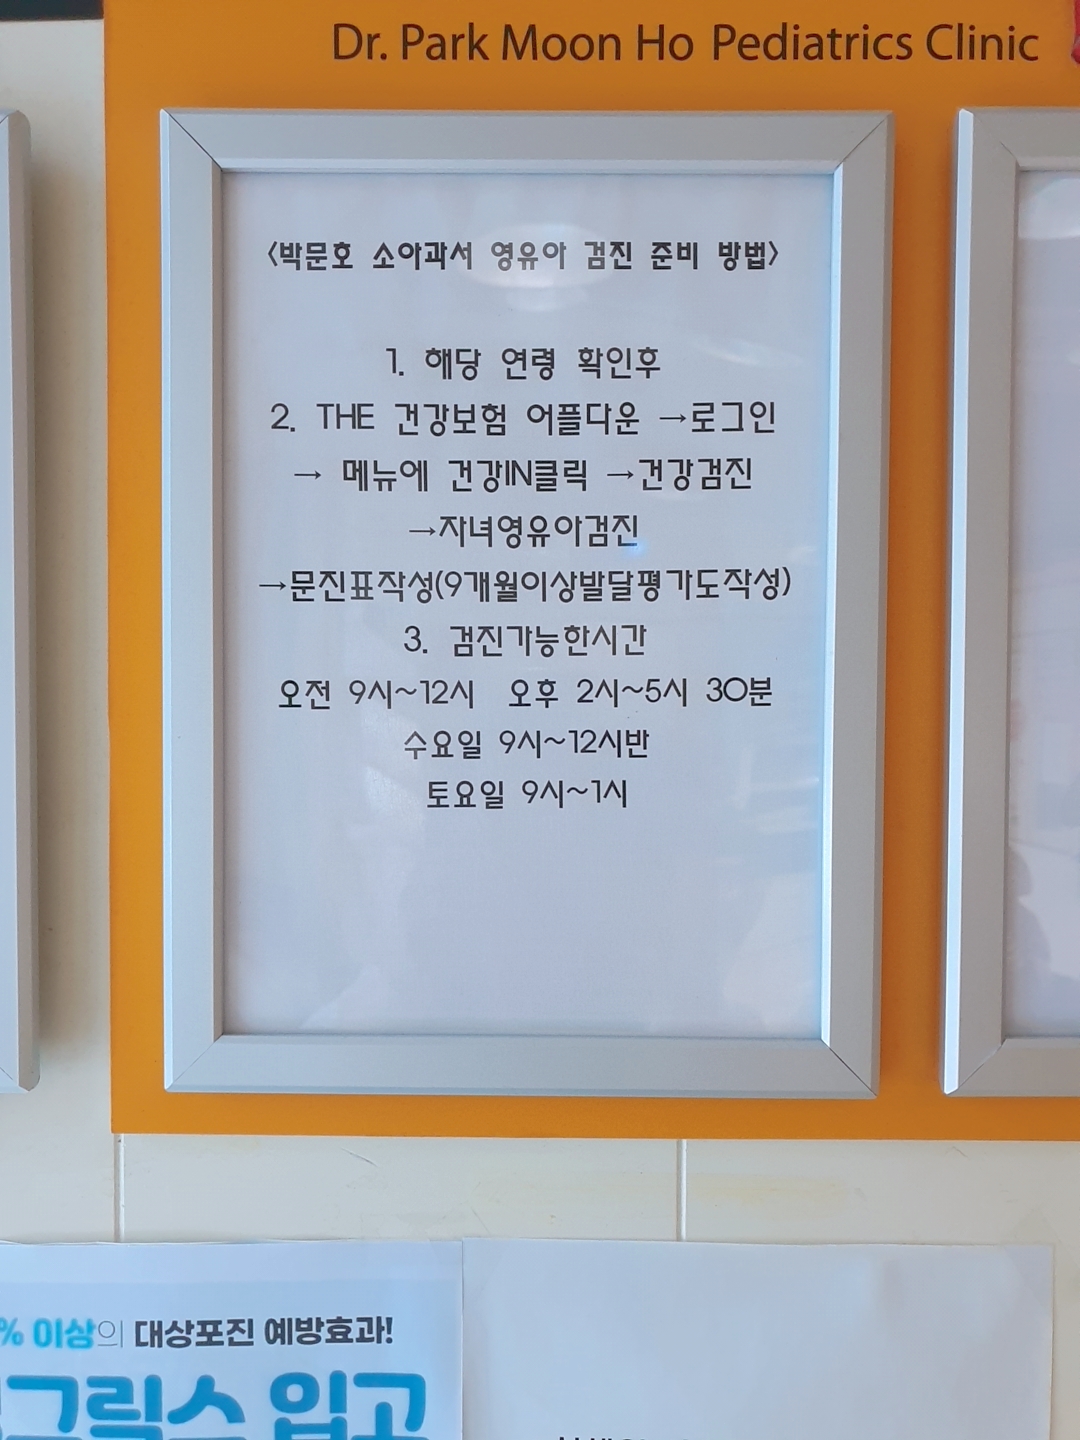 Dr. Park Moon Ho Pediatrics Clinic
<박문호 소아과서 영유아 검진 준비 방법>
1. 해당 연령 확인후
2. THE 건강보험 어플다운 →로그인
→ 메뉴에 건강IN클릭 →건강검진
→자녀영유아검진
→문진표작성(9개월이상발달평가도작성)
3. 검진가능한시간
오전 9시~12시 오후 2시~5시 30분
수요일 9시~12시반
토요일 9시~1시
% 이상의 대상포진 예방효과!
그릭스 입고